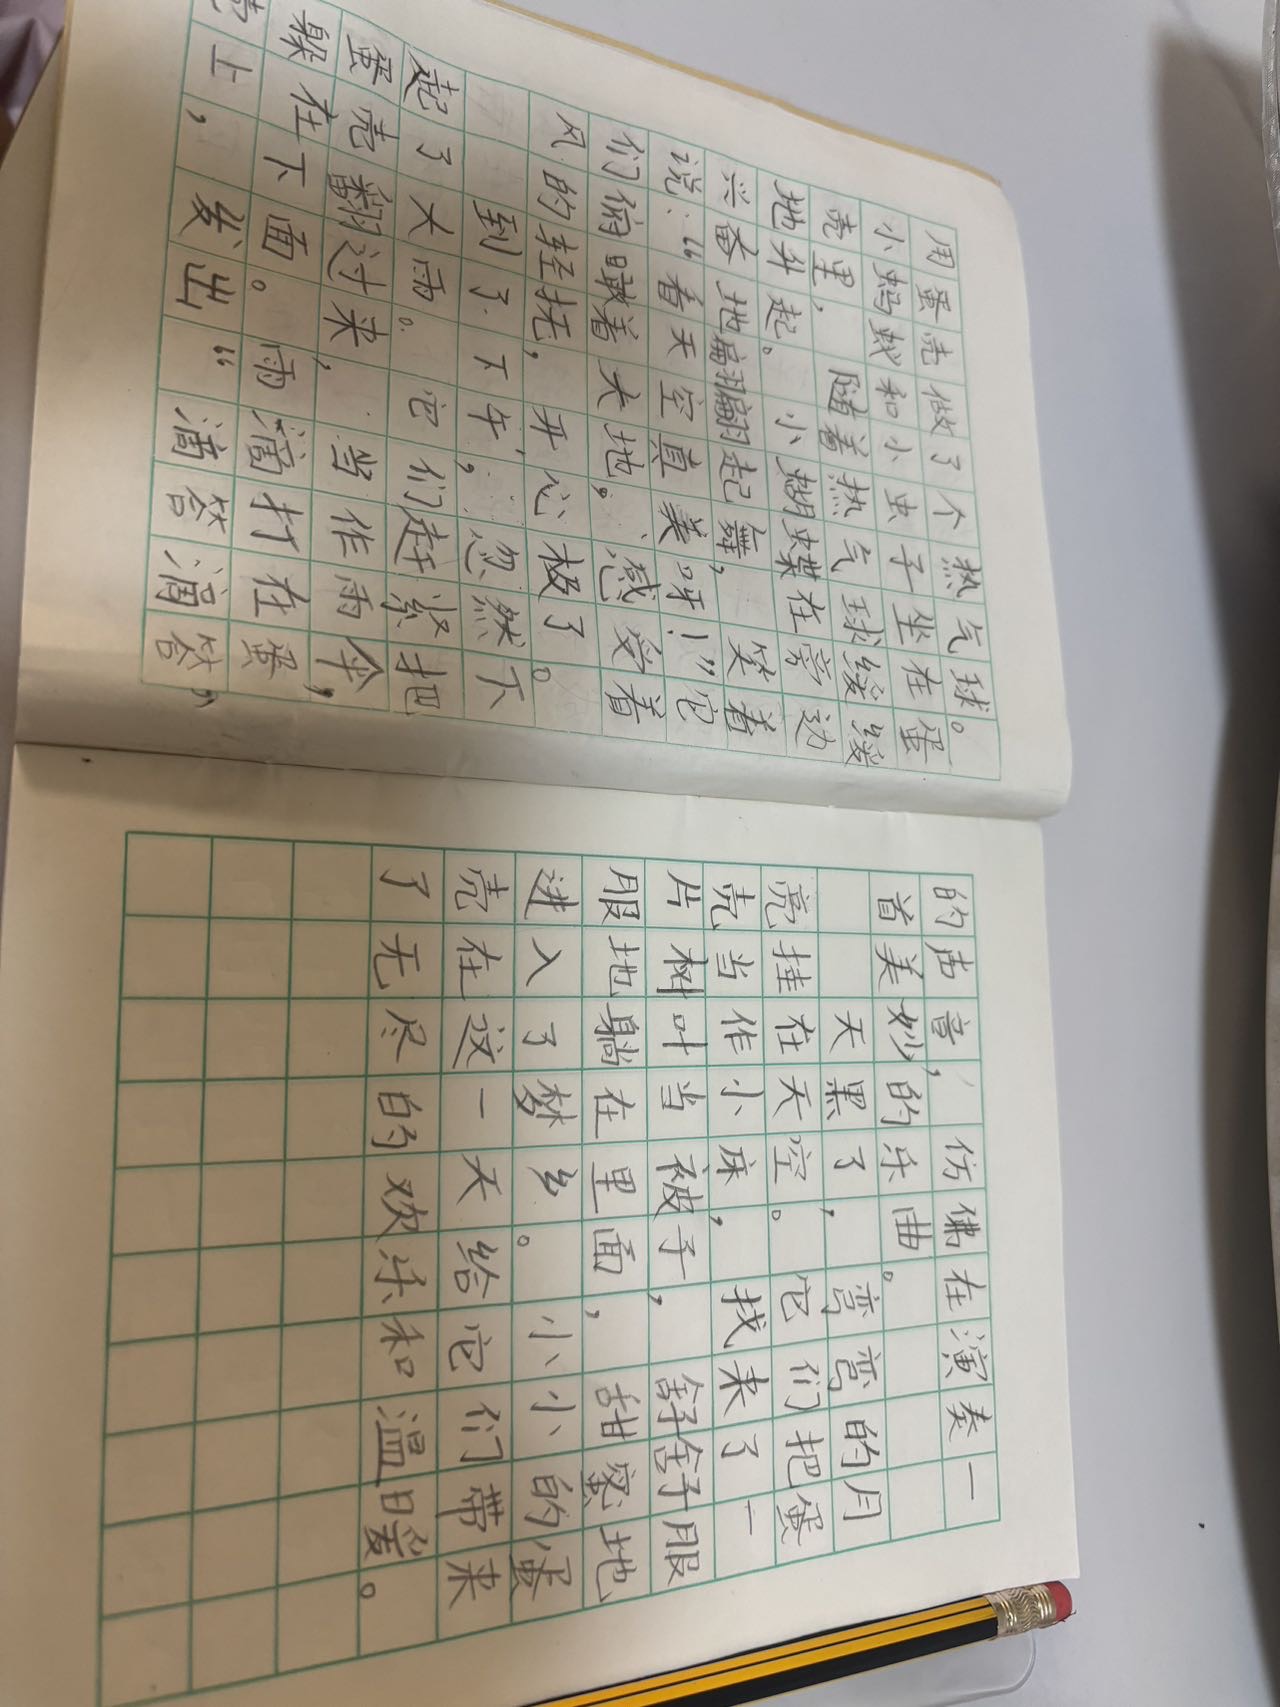 用蛋壳做了个热气球。
小蚂蚁和小虫子坐在蛋
壳里，随着热气球缓缓
地升起。小蝴蝶在旁边
兴奋地翩翩起舞，笑着
说：“看天空真美呀！”它
们俯瞰着大地。感受着
风的轻抚，开心极了。
到了下午，忽然下
起了大雨。它们赶紧把
蛋壳翻过来，当作雨伞，
躲在下面。雨滴打在蛋
壳上，发出“滴答滴答”
的声音，仿佛在演奏一
首美妙的乐曲。
天黑了，弯弯的月
亮挂在天空。它们把蛋
壳当作小床，找来了一
片树叶当被子，舒舒服
服地躺在里面，甜蜜地
进入了梦乡。小小的蛋
壳在这一天给它们带来
了无尽的欢乐和温暖。